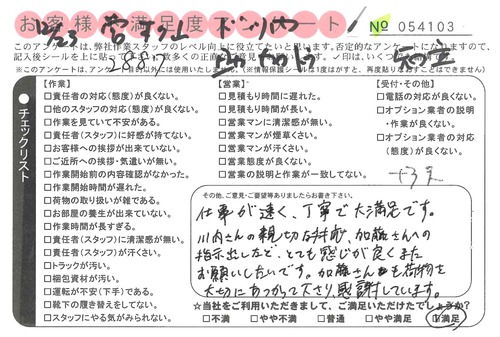 お客様満足度アンケート
№ 054103
このアンケートは、弊社作業スタッフのレベル向上に役立てたいと思います。否定的なアンケートになりますので、
※このアンケートは、アンケート目的以外は使用いたしません。(※情報保護シールは1度はがすと、再度貼りなおすことはできません)
チェックリスト
【作業】
□責任者の対応(態度)が良くない。
□他のスタッフの対応(態度)が良くない。
□作業を見ていて不安がある。
□責任者(スタッフ)に好感が持てない。
□お客様への挨拶が出来ていない。
□ご近所への挨拶・気遣いが無い。
□作業開始前の内容確認がなかった。
□作業開始時間が遅れた。
□荷物の取り扱いが雑である。
□お部屋の養生が出来ていない。
□作業時間が長すぎる。
□責任者(スタッフ)に清潔感が無い。
□責任者(スタッフ)が汗くさい。
□トラックが汚い。
□梱包資材が汚い。
□運転が不安(下手)である。
□靴下の履き替えをしてない。
□スタッフにやる気がみられない。
【営業】
□見積もり時間に遅れた。
□見積もり時間が長い。
□営業マンに清潔感が無い。
□営業マンが煙草くさい。
□営業マンが汗くさい。
□営業態度が良くない。
□営業の説明と作業が一致してない。
【受付・その他】
□電話の対応が良くない。
□オプション業者の説明
・作業が良くない。
□オプション業者の対応
(態度)が良くない。
その他、ご意見・ご要望等ありましたらお書き下さい。
仕事が速く、丁寧で大満足です。
川内さんの親切な対応、加藤さんへの
指示出しなど、とても感じが良くまた
お願いしたいです。加藤さんも荷物を
大切にあつかって下さり、感謝しています。
☆当社をご利用いただきまして、ご満足いただけたでしょうか?
□不満 □やや不満 □普通 □やや満足 □満足